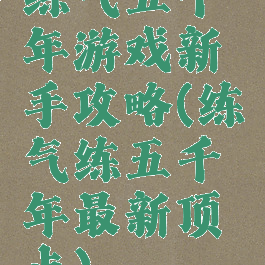 练气五千
年游戏新
手攻略(练
气练五千
年最新顶
点)